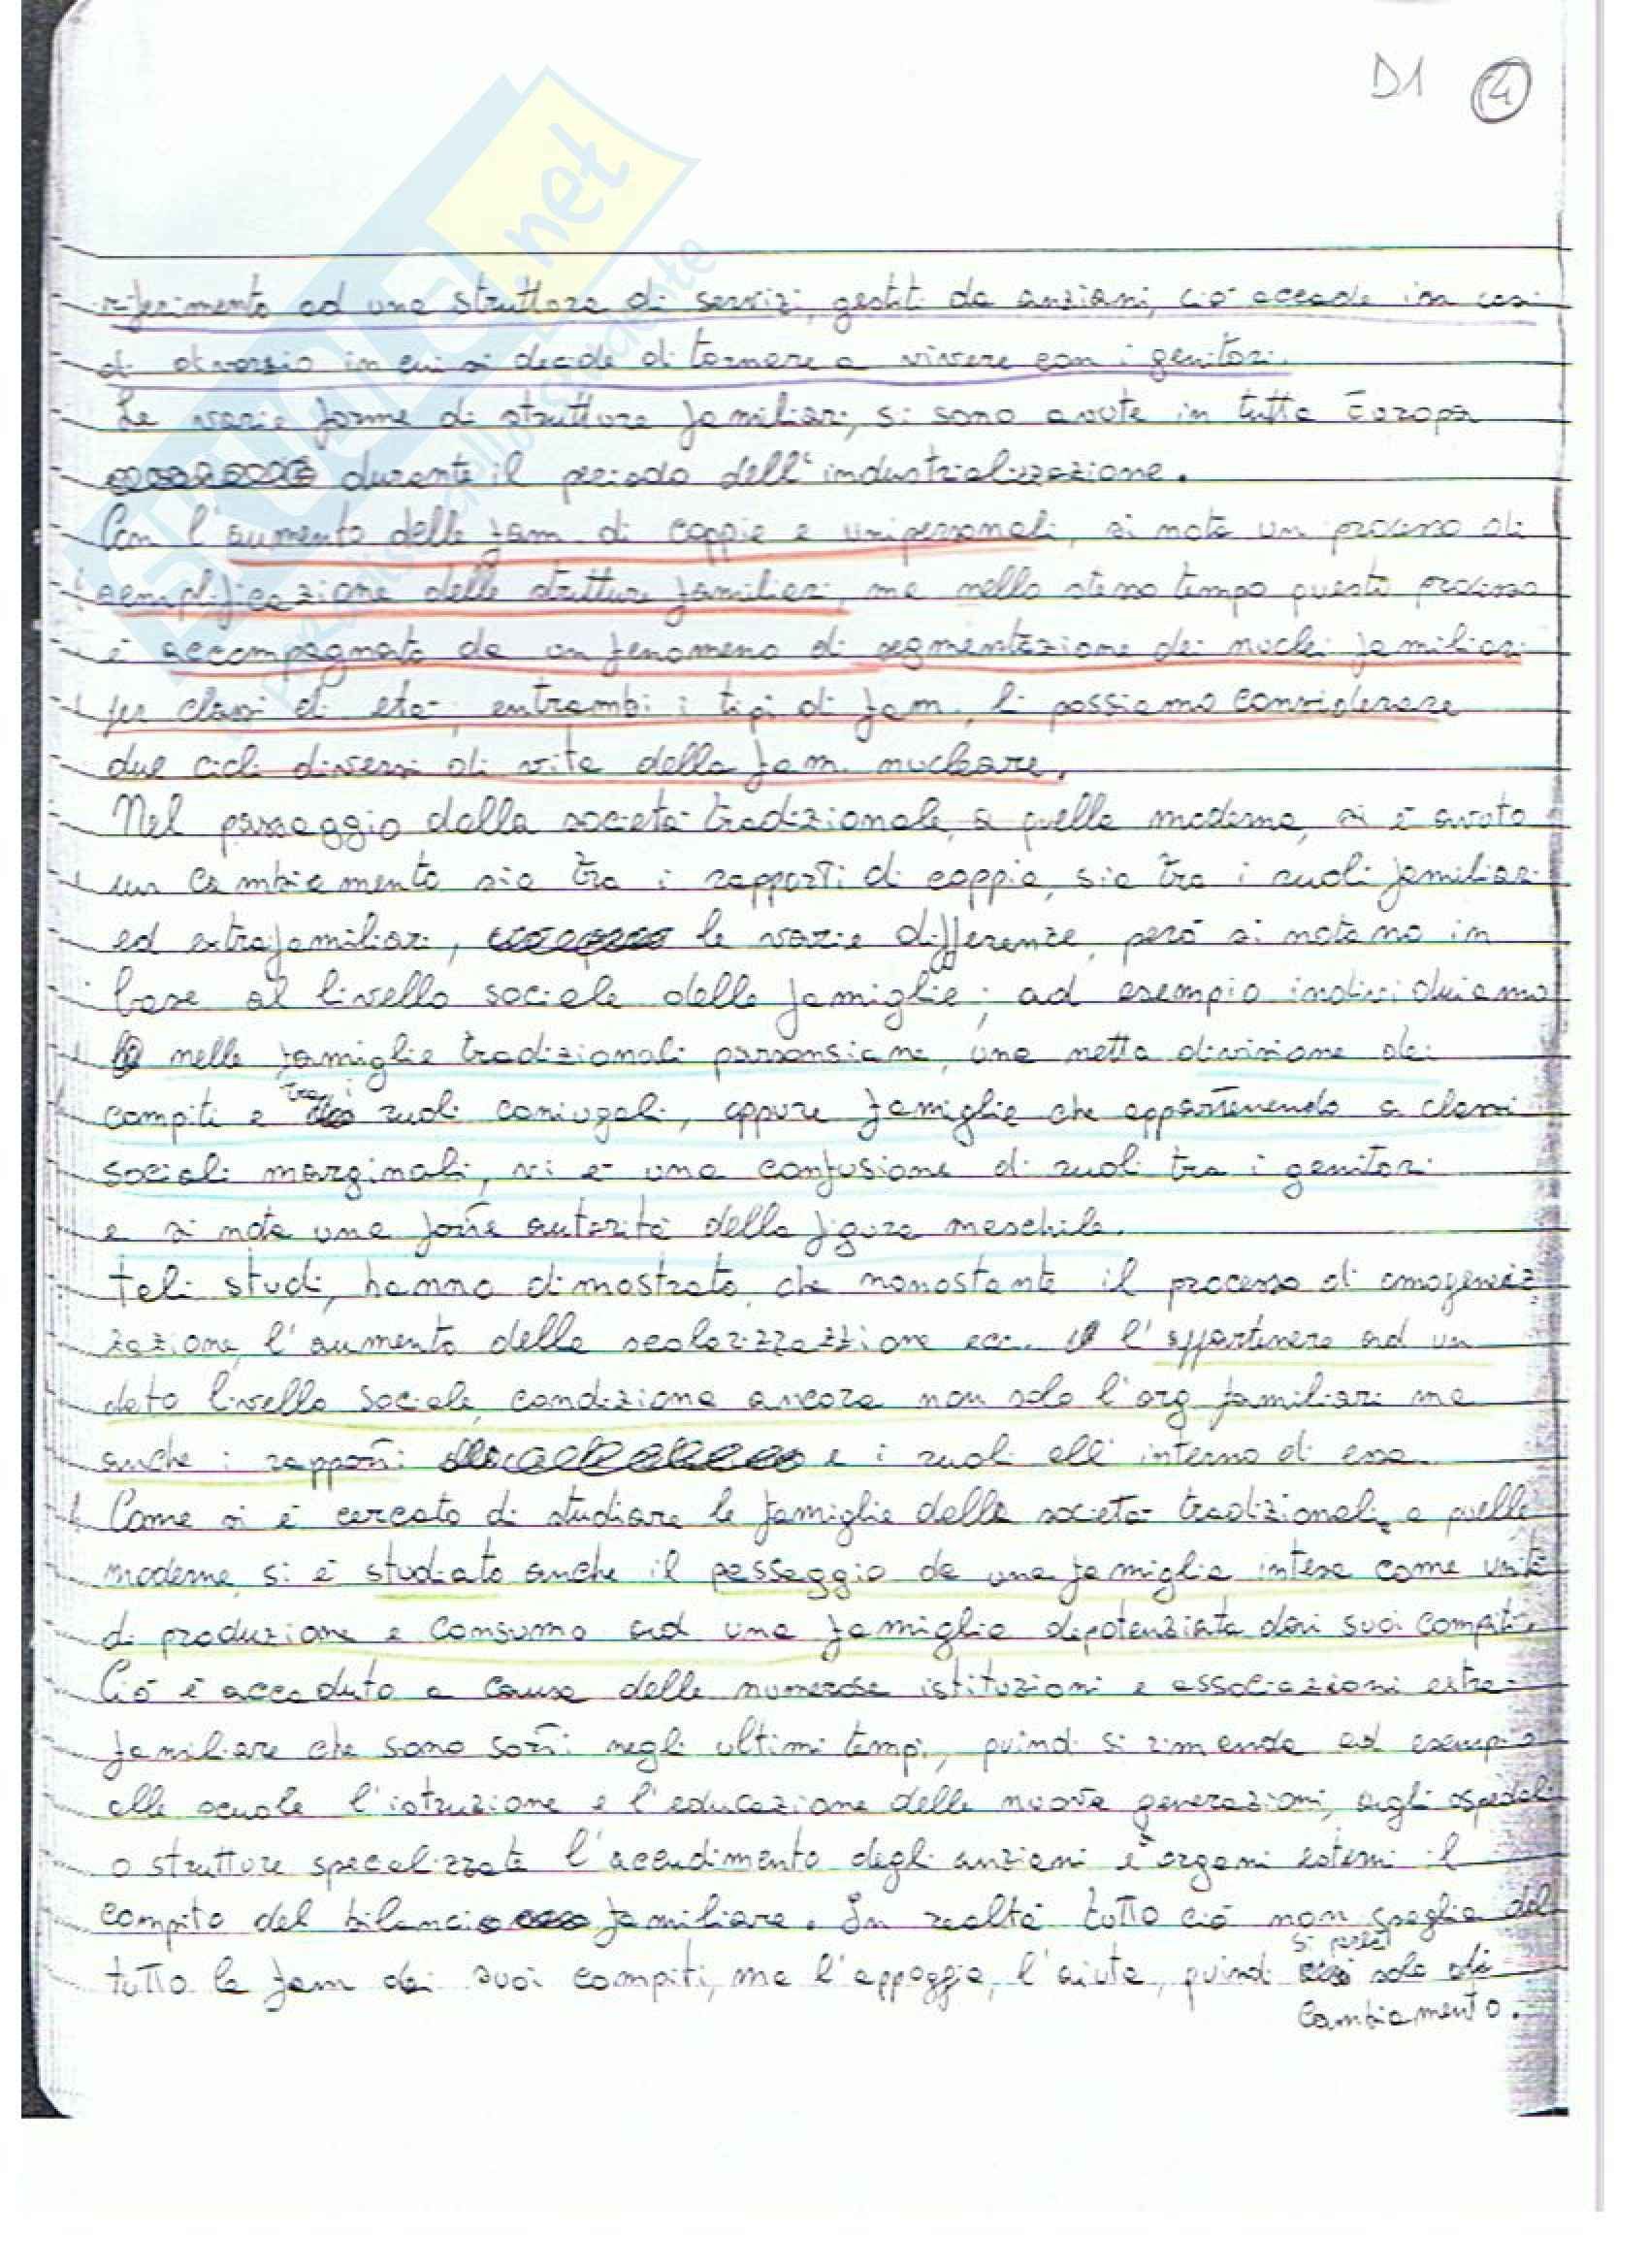 D1 4
riferimento ad una struttura di servizi, gestiti da anziani, ciò accade in casi
di divorzio in cui si decide di tornare a vivere con i genitori.
Le varie forme di strutture familiari, si sono avute in tutta Europa
durante il periodo dell'industrializzazione.
Con l'aumento delle fam. di coppie e unipersonali, si nota un processo di
semplificazione delle strutture familiari, ma nello stesso tempo questo processo
è accompagnato da un fenomeno di segmentazione dei nuclei familiari
per classi di età; entrambi i tipi di fam. li possiamo considerare
due cicli diversi di vita della fam. nucleare.
Nel passaggio dalla società tradizionale, a quella moderna, si è avuto
un cambiamento sia tra i rapporti di coppia, sia tra i ruoli familiari
ed extrafamiliari, le varie differenze, però si notano in
base al livello sociale delle famiglie; ad esempio individuiamo
nelle famiglie tradizionali parsonsiane, una netta divisione dei
compiti e tra i ruoli coniugali, oppure famiglie che appartenendo a classi
sociali marginali, vi è una confusione di ruoli tra i genitori
e si nota una forte autorità della figura maschile.
Tali studi, hanno dimostrato, che nonostante il processo di omogeneiz
zazione, l'aumento della scolarizzazzione ecc... l'appartenere ad un
dato livello sociale, condiziona ancora non solo l'org. familiari ma
anche i rapporti e i ruoli all'interno di essa.
Come si è cercato di studiare le famiglie della società tradizionali, e quelle
moderne, si è studiato anche il passaggio da una famiglia intesa come unità
di produzione e consumo ad una famiglia depotenziata dai suoi compiti.
Ciò è accaduto a causa delle numerose istituzioni e associazioni extra-
familiare che sono sorti negli ultimi tempi, quindi si rimanda ad esempio
alle scuole l'istruzione e l'educazione delle nuove generazioni, agli ospedali
o strutture specializzate l'accudimento degli anziani e organi esterni il
compito del bilancio familiare. In realtà tutto ciò non spoglia del
tutto la fam dei suoi compiti, ma l'appoggia, l'aiuta, quindi si parla solo di
cambiamento.